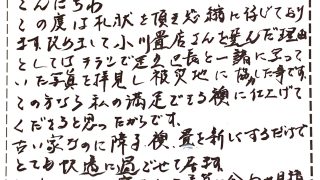 こんにちわ
この度は礼状を頂き恐縮に存じており
ます。改めまして小川畳店さんを選んだ理由
としてはチラシで 区長と一緒に写って
いた写真を拝見し被災地に協力した事です。
この方なら私の満足できる襖に仕上げて
くださると思ったからです。
古い家なのに障子襖、畳を新しくするだけで
とても快適に過ごせて居ります。